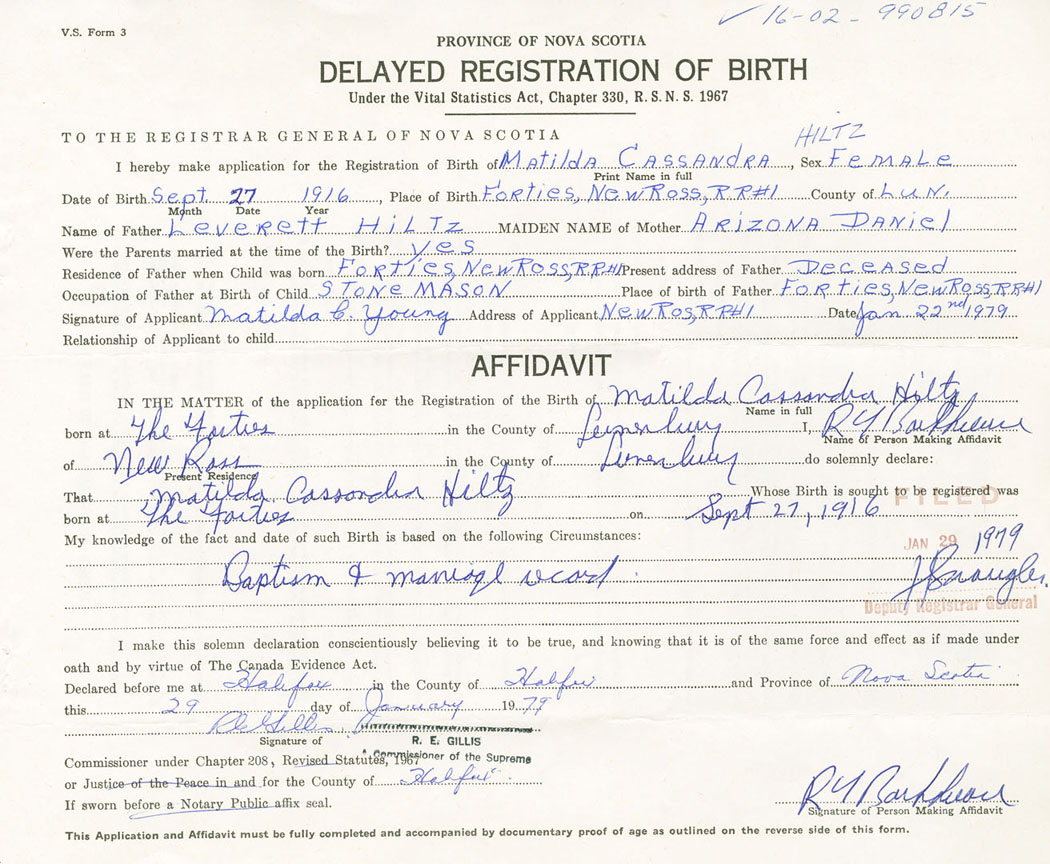 ✓ 16-02-990815
V.S. Form 3
PROVINCE OF NOVA SCOTIA
DELAYED REGISTRATION OF BIRTH
Under the Vital Statistics Act, Chapter 330, R.S.N.S. 1967
TO THE REGISTRAR GENERAL OF NOVA SCOTIA
HILTZ
I hereby make application for the Registration of Birth of MATILDA CASSANDRA, Sex FEMALE
Print Name in full
Date of Birth Sept. 27 1916, Place of Birth FORTIES, NEW ROSS, RR#1 County of LUN.
Month Date Year
Name of Father LEVERETT HILTZ MAIDEN NAME of Mother ARIZONA DANIEL
Were the Parents married at the time of the Birth? yes
Residence of Father when Child was born FORTIES, NEW ROSS, RR#1 Present address of Father DECEASED
Occupation of Father at Birth of Child STONE MASON Place of birth of Father FORTIES, NEW ROSS, RR#1
Signature of Applicant Matilda C. Young Address of Applicant NEW ROS, RR#1 Date Jan 22nd 1979
Relationship of Applicant to child
AFFIDAVIT
IN THE MATTER of the application for the Registration of the Birth of Matilda Cassandra Hiltz
Name in full
born at The Forties in the County of Lunenburg I, R Y
Name of Person Making Affidavit
of New Ross in the County of Lunenburg do solemnly declare:
Present Residence
That Matilda Cassandra Hiltz Whose Birth is sought to be registered was
born at The Forties on Sept 27, 1916
FILED
My knowledge of the fact and date of such Birth is based on the following Circumstances:
JAN 29 1979
Baptism & marriage record.
Deputy Registrar General
I make this solemn declaration conscientiously believing it to be true, and knowing that it is of the same force and effect as if made under
oath and by virtue of The Canada Evidence Act.
Declared before me at Halifax in the County of Halifax and Province of Nova Scotia
this 29 day of January 1979
R E Gillis
Signature of R. E. GILLIS
Commissioner under Chapter 208, Revised Statutes, 1967 A Commissioner of the Supreme
or Justice of the Peace in and for the County of Halifax
If sworn before a Notary Public affix seal.
R Y
Signature of Person Making Affidavit
This Application and Affidavit must be fully completed and accompanied by documentary proof of age as outlined on the reverse side of this form.